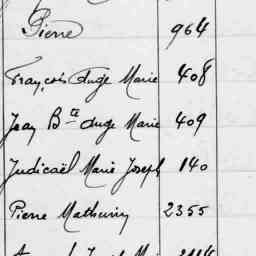 Pierre 964
François Ange Marie 408
Jean Bte Ange Marie 409
Judicaël Marie Joseph 140
Pierre Mathurin 2355